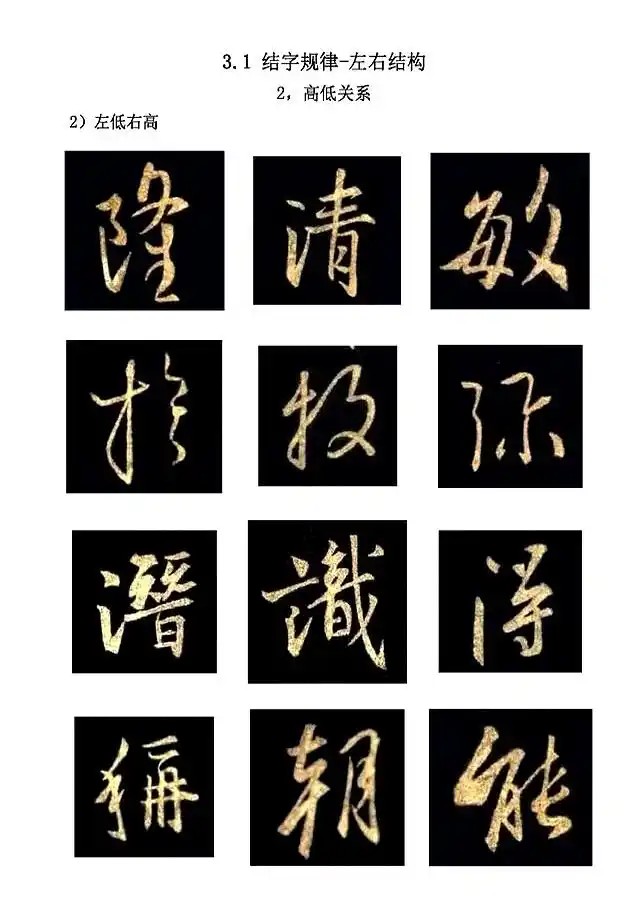 3.1 结字规律-左右结构
2，高低关系
2）左低右高
隆 清 敏
於
潛 識 得
稱 朝 能